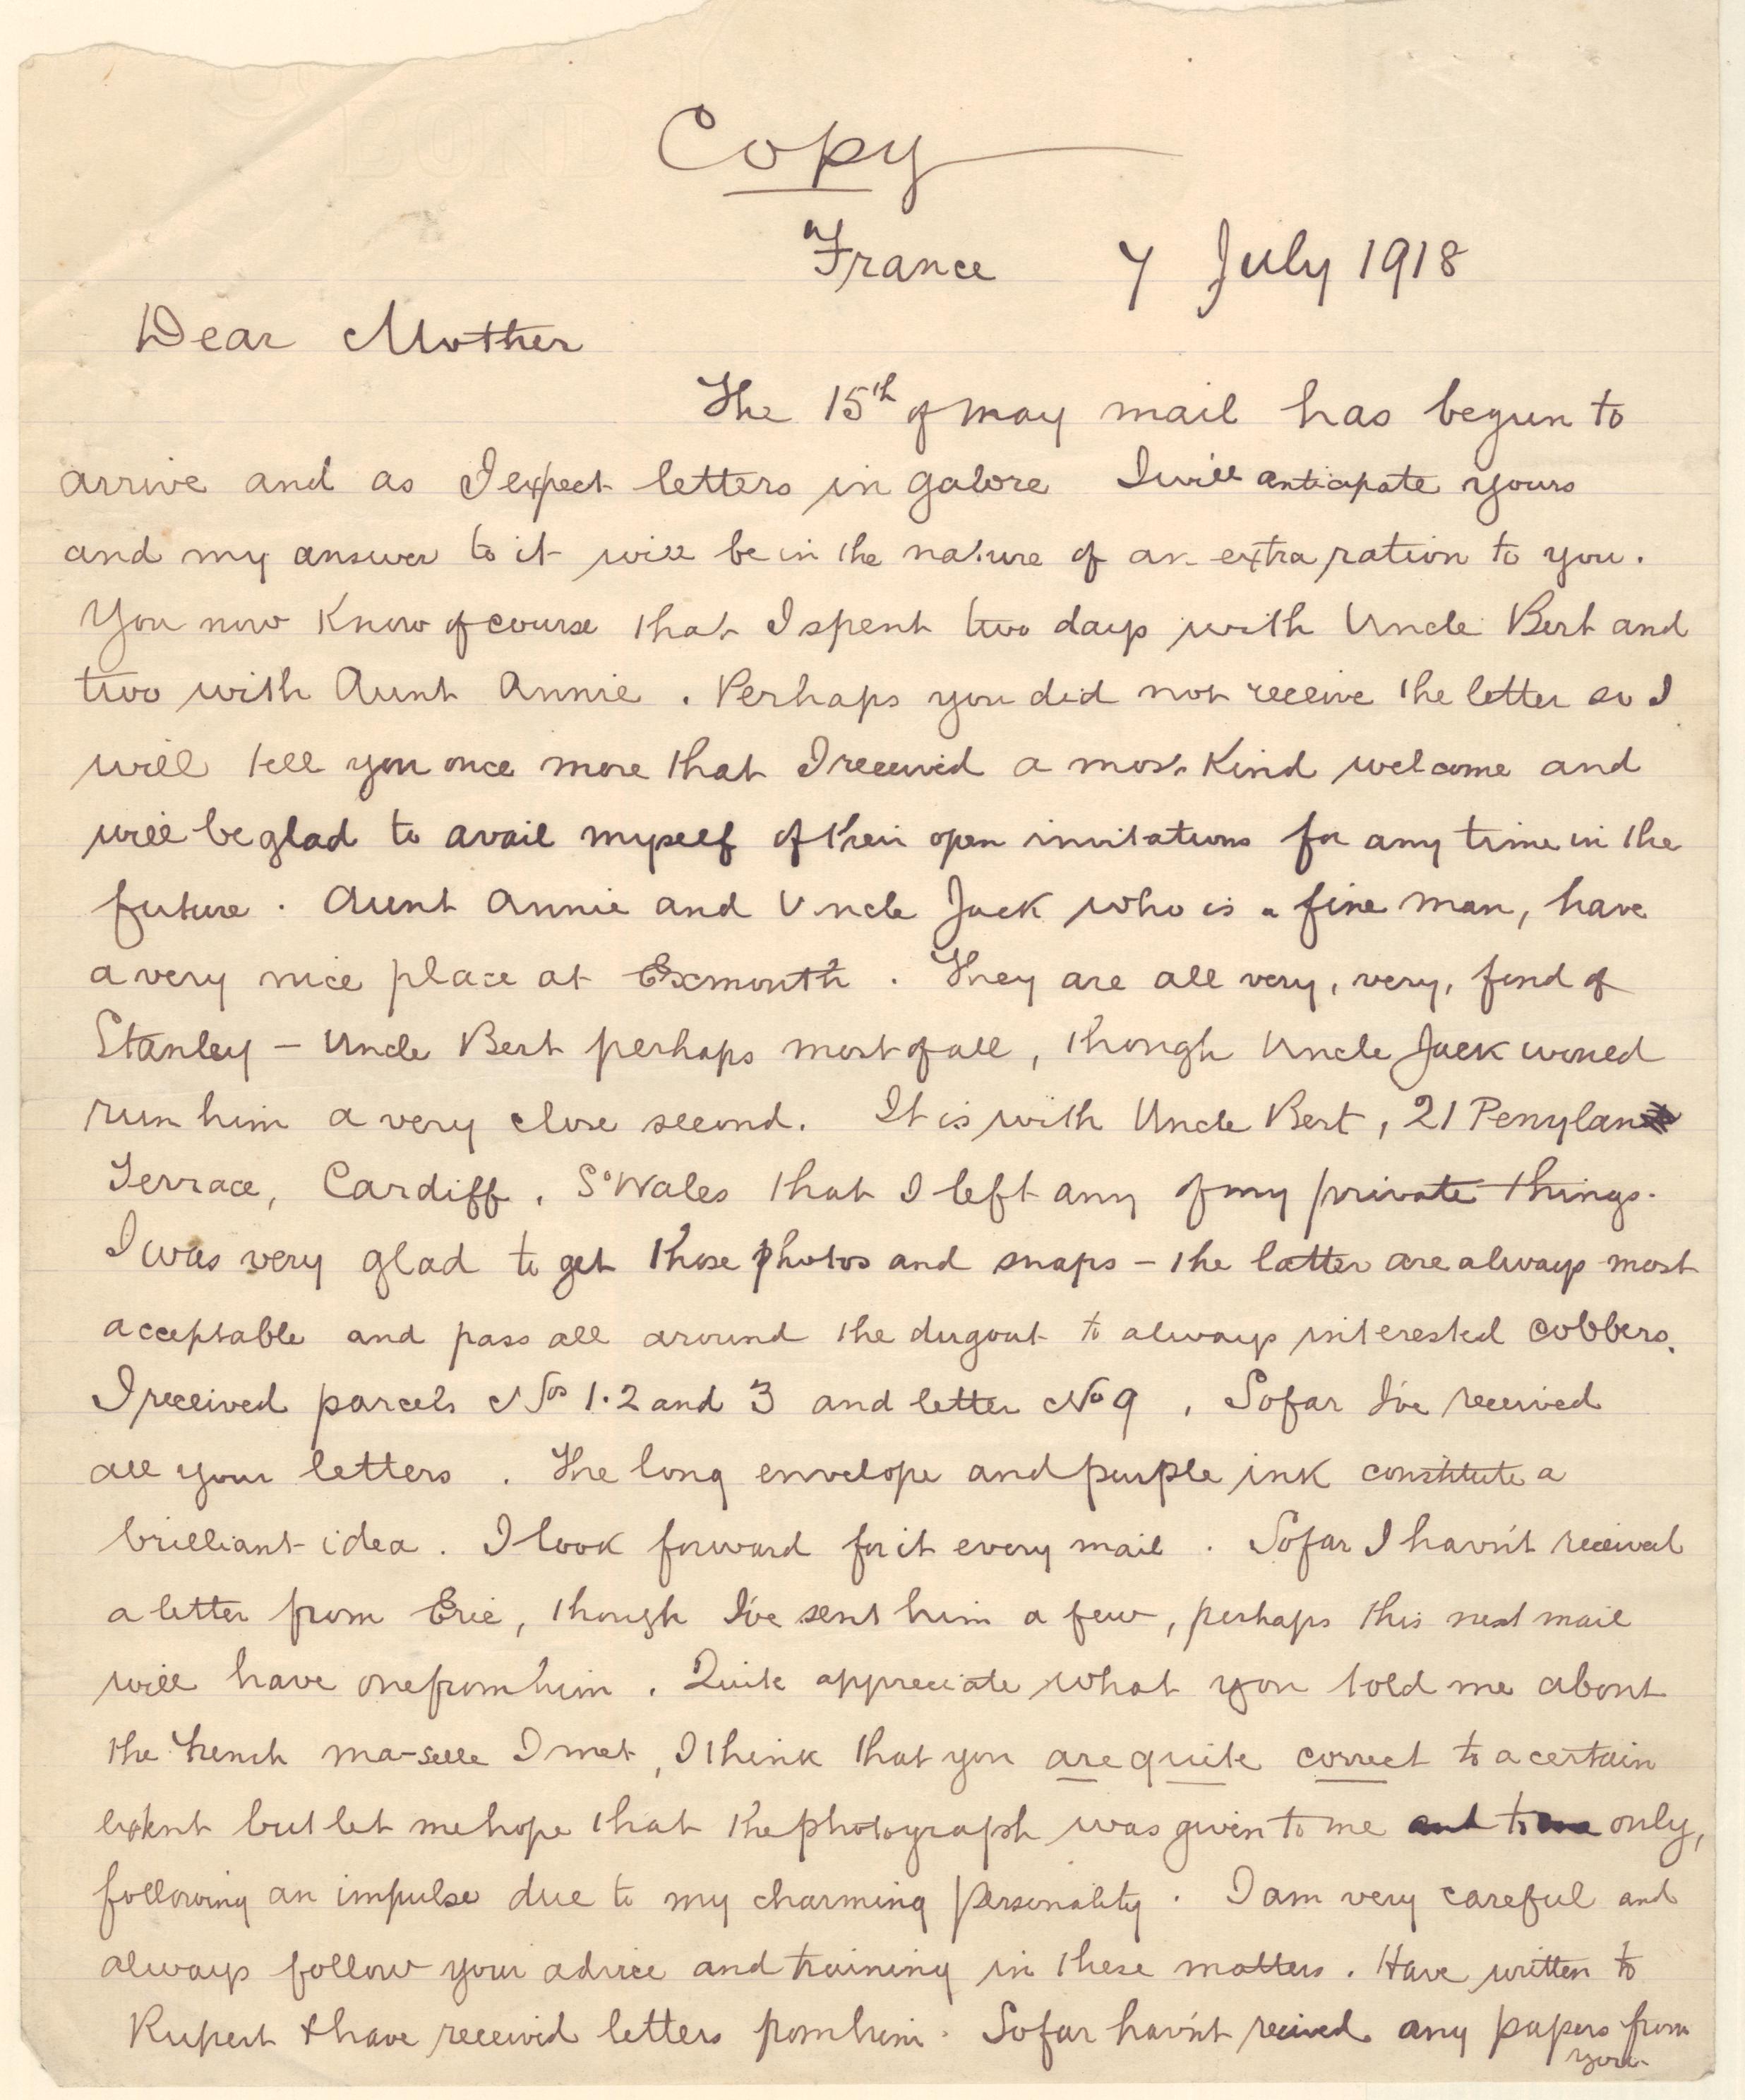 Copy
France 7 July 1918
Dear Mother
The 15th of May mail has begun to
arrive and as I expect letters in galore I will anticipate yours
and my answer to it will be in the nature of an extra ration to you.
You now know of course that I spent two days with Uncle Bert and
two with Aunt Annie. Perhaps you did not receive the letter so I
will tell you once more that I received a most kind welcome and
will be glad to avail myself of their open invitations for any time in the
future. Aunt Annie and Uncle Jack who is a fine man, have
a very nice place at Exmouth. They are all very, very, fond of
Stanley - Uncle Bert perhaps most of all, though Uncle Jack would
run him a very close second. It is with Uncle Bert, 21 Penylan
Terrace, Cardiff, So Wales that I left any of my private things.
I was very glad to get those photos and snaps - the latter are always most
acceptable and pass all around the dugout to always interested cobbers.
I received parcels Nos 1.2 and 3 and letter No 9, Sofar I've received
all your letters. The long envelope and purple ink constitute a
brilliant idea. I look forward for it every mail. Sofar I havn't received
a letter from Eric, though I've sent him a few, perhaps this next mail
will have one from him. Quite appreciate what you told me about
the French ma-selle I met, I think that you are quite correct to a certain
extent but let me hope that the photograph was given to me and to me only,
following an impulse due to my charming personality. I am very careful and
always follow your advice and training in these matters. Have written to
Rupert & have received letters from him. Sofar havn't recived any papers from
you.